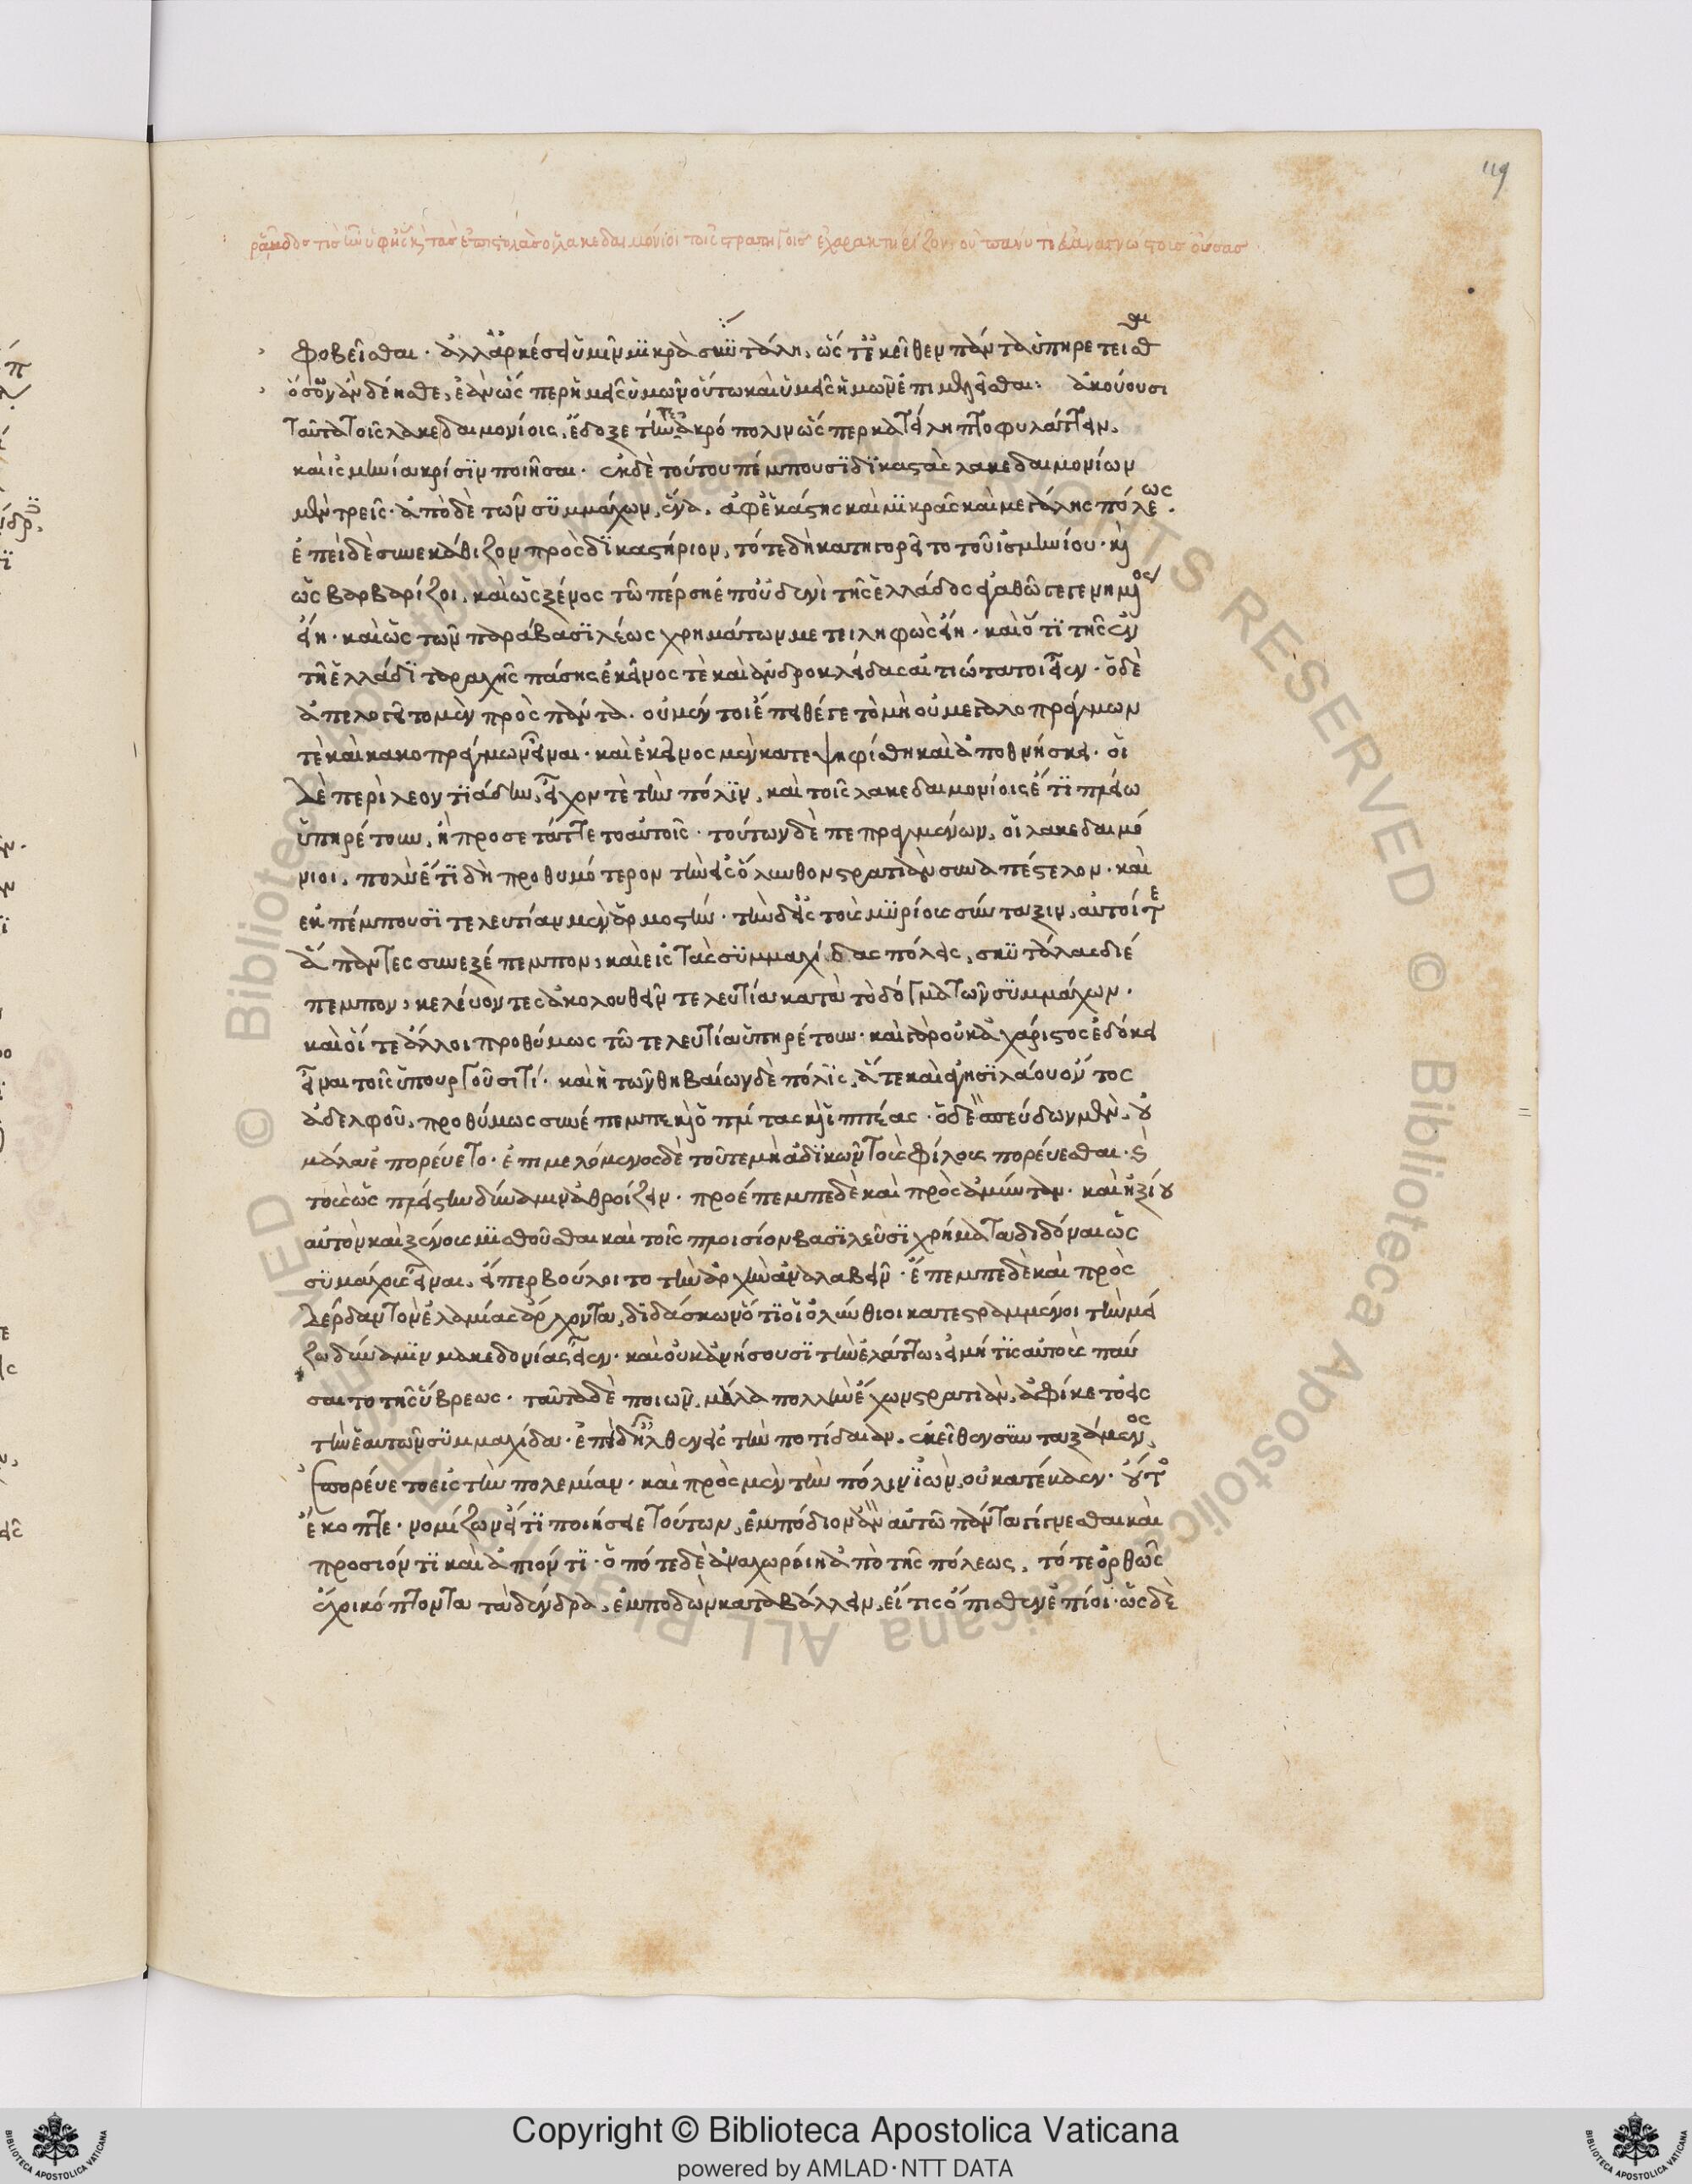 119
φοβεῖσθαι· ἀλλ' ἀρκέσει ὑμῖν μικρὰ σκυτάλη, ὥστε ἐκεῖθεν πάντα ὑπηρετεῖσθαι
ὅσων ἂν δέησθε, ἐὰν ὥσπερ ἡμεῖς ὑμῶν οὕτω καὶ ὑμεῖς ἡμῶν ἐπιμελῆσθε: ἀκούουσι
ταῦτα τοῖς λακεδαιμονίοις, ἔδοξε τήν τε ἀκρόπολιν ὥσπερ κατείληπτο φυλάττειν,
καὶ ἰσμηνία κρίσιν ποιῆσαι· ἐκ δὲ τούτου πέμπουσι δικαστὰς λακεδαιμονίων
μὲν τρεῖς· ἀπὸ δὲ τῶν συμμάχων, ἕνα, ἀφ' ἑκάστης καὶ μικρᾶς καὶ μεγάλης πόλεως.
ἐπεὶ δὲ συνεκάθιζον πρὸς δικαστήριον, τότε δὴ κατηγορεῖτο τοῦ ἰσμηνίου· καὶ
ὡς βαρβαρίζοι, καὶ ὡς ξένος τῶ πέρση ἐπ' οὐδενὶ τῆς ἑλλάδος ἀγαθῶ γεγενημένος
εἴη· καὶ ὡς τῶν παρὰ βασιλέως χρημάτων μετειληφὼς εἴη· καὶ ὅτι τῆς ἐν
τῆ ἑλλάδι ταραχῆς πάσης ἐκεῖνός τε καὶ ἀνδροκλείδας αἰτιώτατοι εἶεν· ὁ δὲ
ἀπελογεῖτο μὲν πρὸς πάντα. οὐ μέντοι ἔπειθέ γε τὸ μὴ οὐ μεγαλοπράγμων
τε καὶ κακοπράγμων εἶναι· καὶ ἐκεῖνος μὲν κατεψηφίσθη καὶ ἀποθνήσκει· οἱ
δὲ περὶ λεοντιάδην, εἶχόν τε τὴν πόλιν, καὶ τοῖς λακεδαιμονίοις ἔτι πλείω
ὑπηρέτουν, ἢ προσετάττετο αὐτοῖς· τούτων δὲ πεπραγμένων, οἱ λακεδαιμό
νιοι, πολὺ ἔτι δὴ προθυμότερον τὴν εἰς ὄλυνθον στρατιὰν συναπέστελον· καὶ
ἐκπέμπουσι τελευτίαν μὲν ἁρμοστήν· τὴν δ' εἰς τοὺς μυρίους σύνταξιν, αὐτοί τε
ἅπαντες συνεξέπεμπον, καὶ εἰς τὰς συμμαχίδας πόλεις, σκυτάλας διέ
πεμπον, κελεύοντες ἀκολουθεῖν τελευτία κατὰ τὸ δόγμα τῶν συμμάχων.
καὶ οἵ τε ἄλλοι προθύμως τῶ τελευτία ὑπηρέτουν· καὶ γὰρ οὐκ ἀχάριστος ἐδόκει
εἶναι τοῖς ὑπουργοῦσί τι· καὶ ἡ τῶν θηβαίων δὲ πόλις, ἅτε καὶ ἀγησιλάου ὄντος
ἀδελφοῦ, προθύμως συνέπεμπε καὶ ὁπλίτας καὶ ἱππέας· ὁ δὲ σπεύδων μὲν, οὐ
μάλα ἐπορεύετο· ἐπιμελόμενος δὲ τοῦ τε μὴ ἀδικῶν τοὺς φίλους πορεύεσθαι·
τοῦ ὡς πλείστην δύναμιν ἀθροίζειν· προέπεμπε δὲ καὶ πρὸς ἀμύνταν· καὶ ἠξίου
αὐτὸν καὶ ξένους μισθοῦσθαι καὶ τοῖς πλησίον βασιλεῦσι χρήματα διδόναι ὡς
συμάχους εἶναι, εἴπερ βούλοιτο τὴν ἀρχὴν ἀναλαβεῖν· ἔπεμπε δὲ καὶ πρὸς
δέρδαν τὸν ἐλαμίας ἄρχοντα, διδάσκων ὅτι οἱ ὀλύνθιοι κατεστραμμένοι τὴν μεί
ζω δύναμιν μακεδονίας εἶεν· καὶ οὐκ ἀνήσουσι τὴν ἐλάττω, εἰ μή τις αὐτοὺς παύ
σαι τὸ τῆς ὕβρεως· ταῦτα δὲ ποιῶν, μάλα πολλὴν ἔχων στρατιὰν, ἀφίκετο εἰς
τὴν ἑαυτῶν συμμαχίδα· ἐπεὶ δ' ἦλθεν εἰς τὴν ποτίδαιαν, ἐκεῖθεν συνταξάμενος
ἐπορεύετο εἰς τὴν πολεμίαν· καὶ πρὸς μὲν τὴν πόλιν ἰὼν, οὐκ ἀτέκαεν· οὔτε
ἔκοπτε· νομίζων εἴ τι ποιήσειε τούτων, ἐμποδὼν ἂν αὐτῶ πάντα γίγνεσθαι καὶ
προσιόντι καὶ ἀπιόντι· ὁπότε δὲ ἀναχωροίη ἀπὸ τῆς πόλεως, τότε ὀρθῶς
ἔχοι κόπτοντα τὰ δένδρα, ἐμποδὼν καταβάλλειν, εἴ τις ὄπισθεν ἐπίοι· ὡς δὲ
Copyright © Biblioteca Apostolica Vaticana
powered by AMLAD·NTT DATA